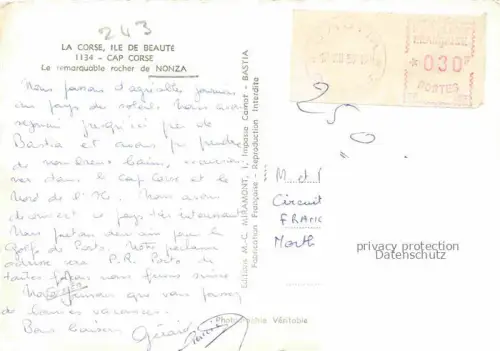 243
LA CORSE, ILE DE BEAUTÉ
1134 - CAP CORSE
Le remarquable rocher de NONZA
Nous passons d'agréables journées
au pays du soleil. Nous avons
séjourné jusqu'ici près de
Bastia et avons pu prendre
de nombreux bains,
dans le Cap Corse et le
Nord de l'Ile. Nous avons
un pays très intéressant
Nous partons demain pour le
Golf de Porto. Notre prochaine
adresse sera P.R. Porto de
toutes façons nous ferons suivre
Nous que vous passez
de bonnes vacances.
Bons baisers Gérard
Editions M.-C. MIRAMONT, 1, Impasse Carnot - BASTIA
Fabrication Française - Reproduction Interdite
Photographie Véritable
FRANÇAISE
*030
POSTES
250
M. et
Circuit
FRANC
North
privacy protection
Datenschutz